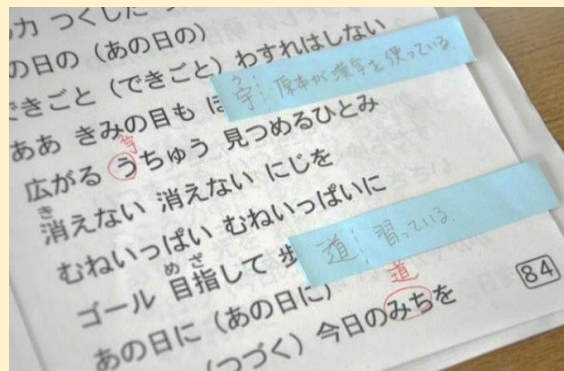 力 つくした
の日の（あの日の）
できごと（できごと）わすれはしない
ああ きみの目も
宇 原本が漢字を使っている。
宇
広がる うちゅう 見つめるひとみ
き
消えない 消えない にじを
むねいっぱい むねいっぱいに
道 習っている。
めざ
ゴール 目指して 歩
道
あの日に（あの日に）
（つづく）今日のみちを
84